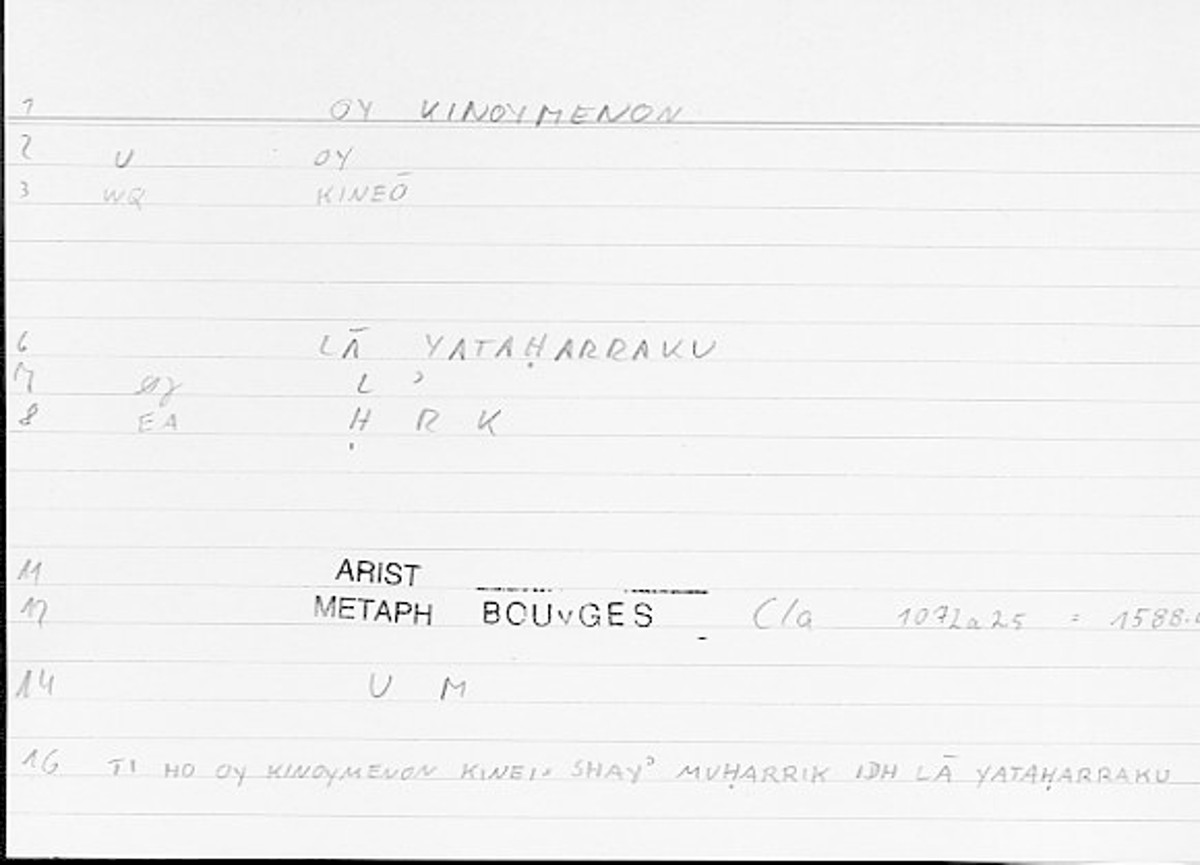 1 OY KINOYMENON
2 U OY
3 WQ KINEŌ
6 LĀ YATAḤARRAKU
7 L ʾ
8 EA Ḥ R K
11 ARIST
12 METAPH BOUYGES C/a 1072a25 = 1588.
14 U M
16 TI HO OY KINOYMENON KINEI. SHAYʾ MUḤARRIK IDH LĀ YATAḤARRAKU